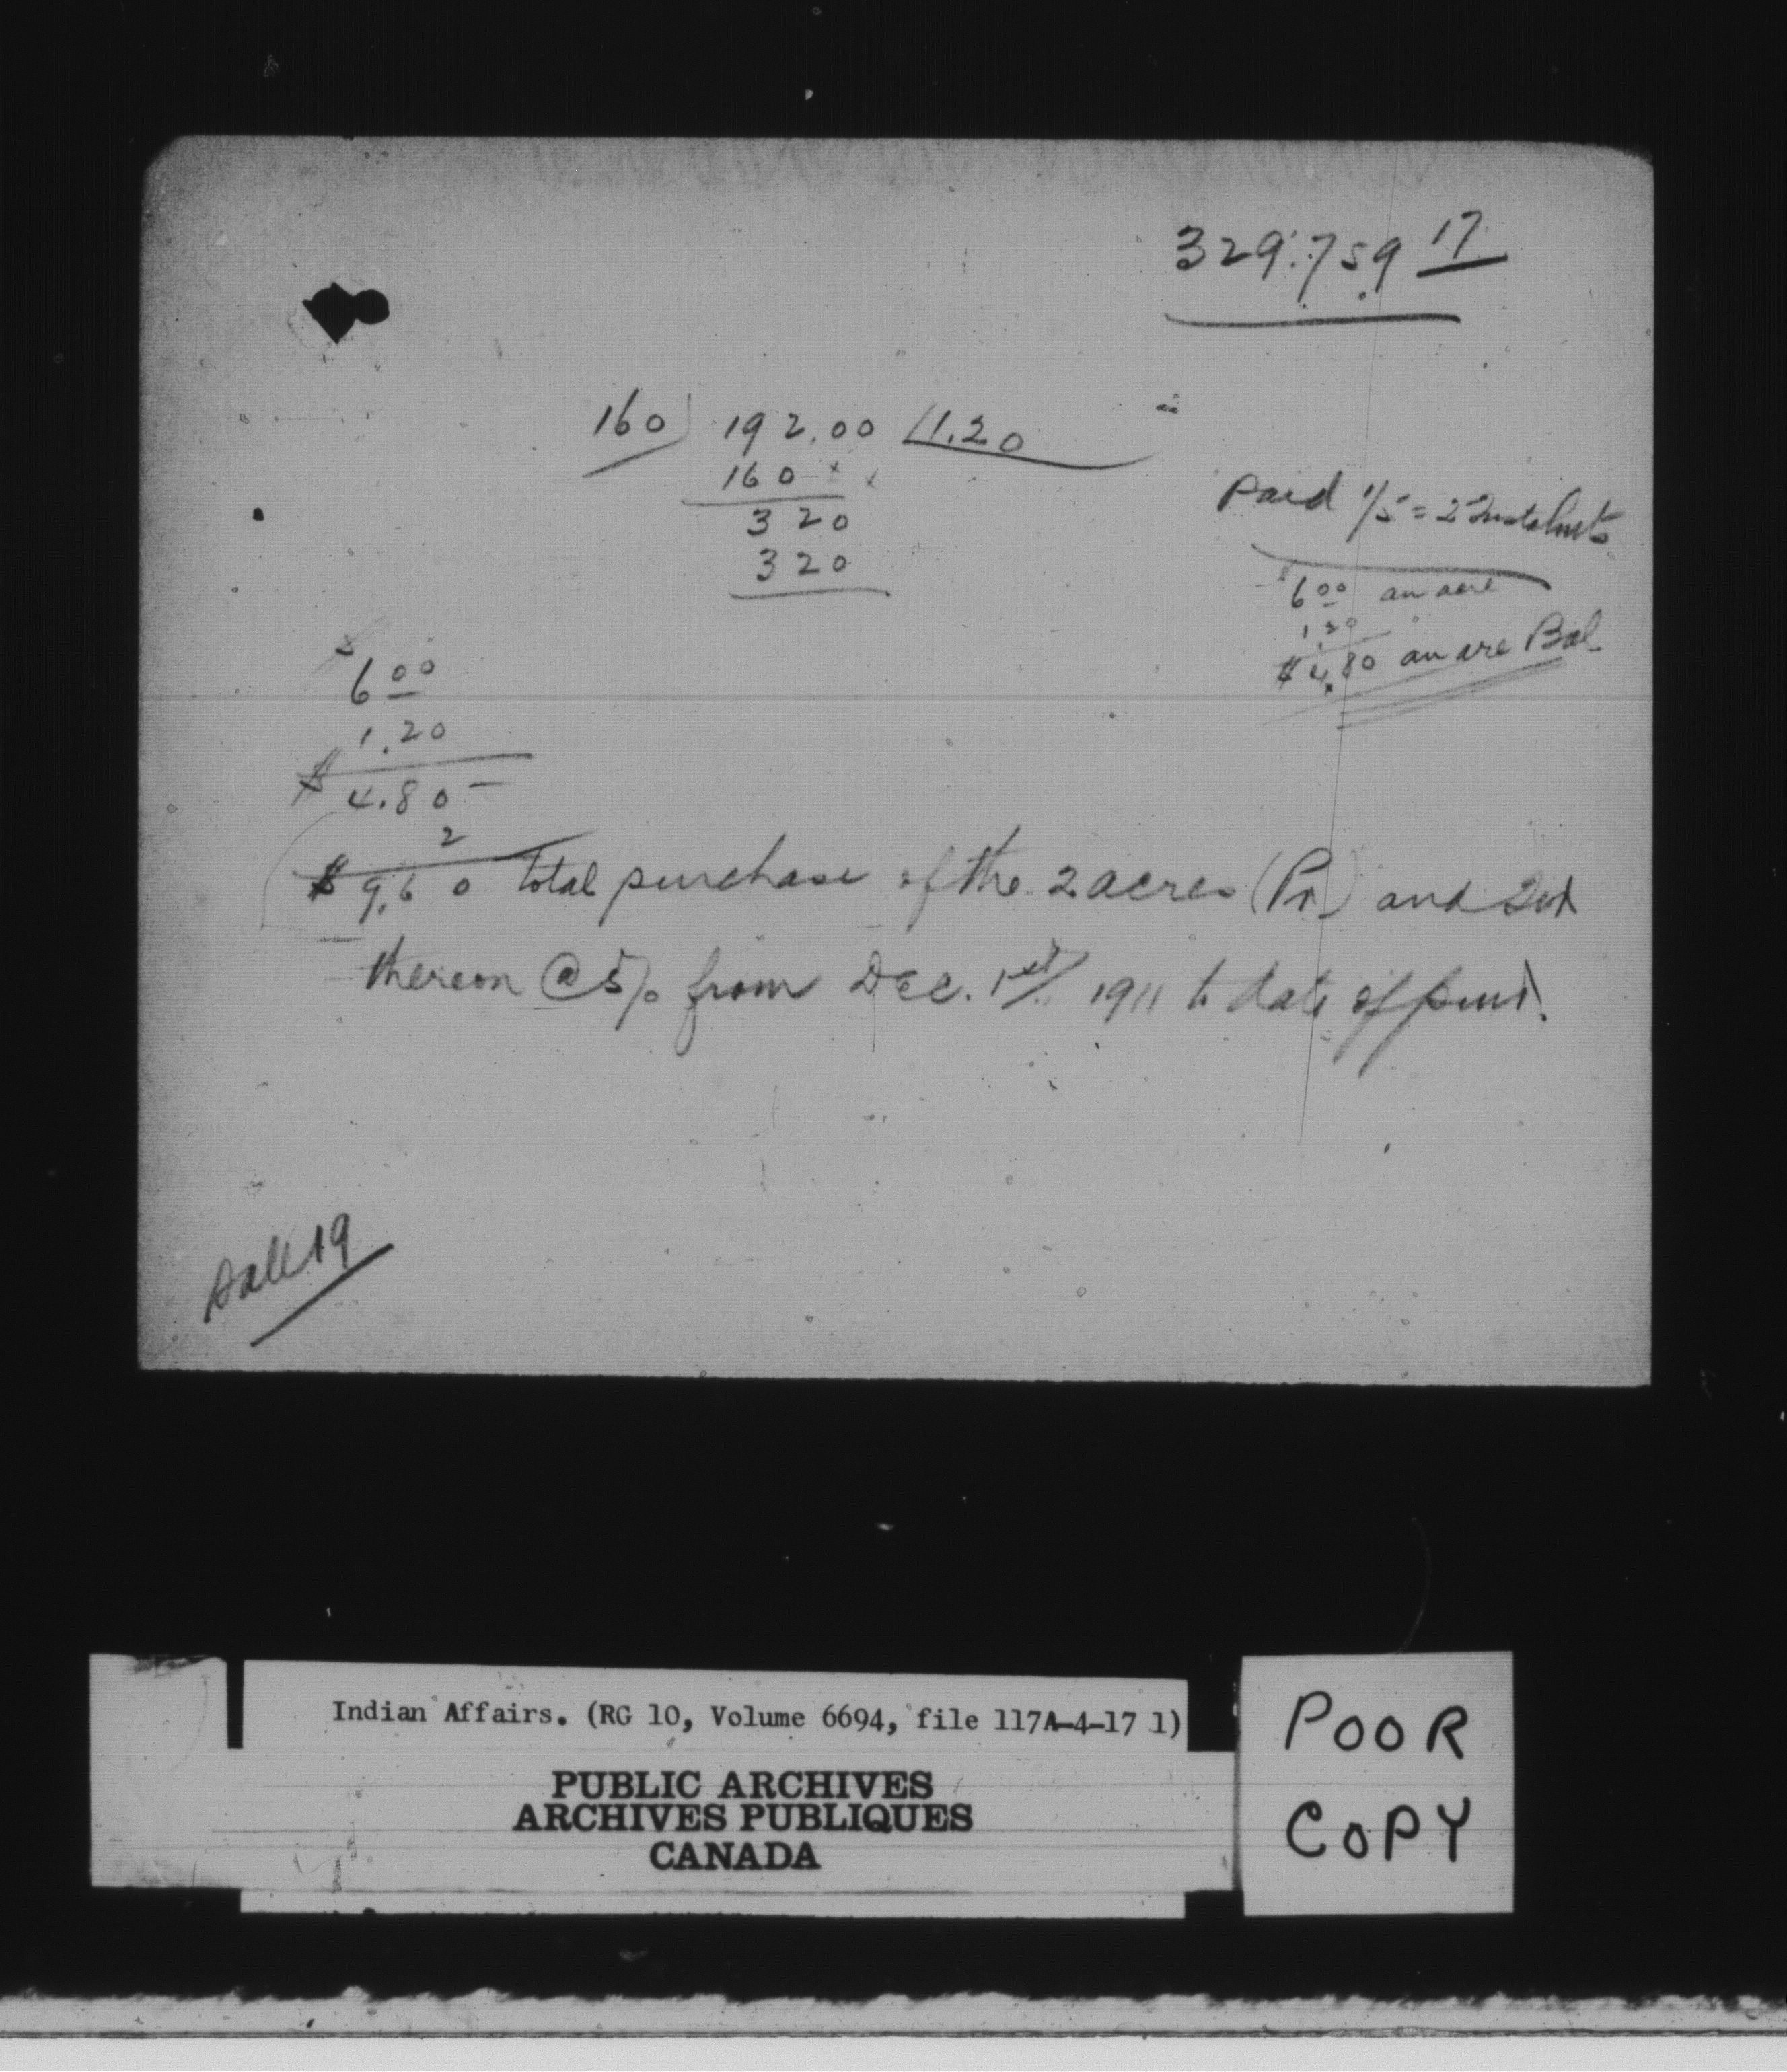 329.759 17
160) 192.00 (1.20
160
320
320
Paid 1/5 = 2 Instalmts
$6 00 an acre
1.20
$4.80 an acre Bal
$
6 00
1.20
$ 4.80
2
$ 9.60 total purchase of the 2 acres (Pr) and Int
thereon @ 5% from Dec. 1st/ 1911 to date of pmt.
Sale 19
Indian Affairs. (RG 10, Volume 6694, file 117A-4-17 1)
PUBLIC ARCHIVES
ARCHIVES PUBLIQUES
CANADA
POOR
COPY